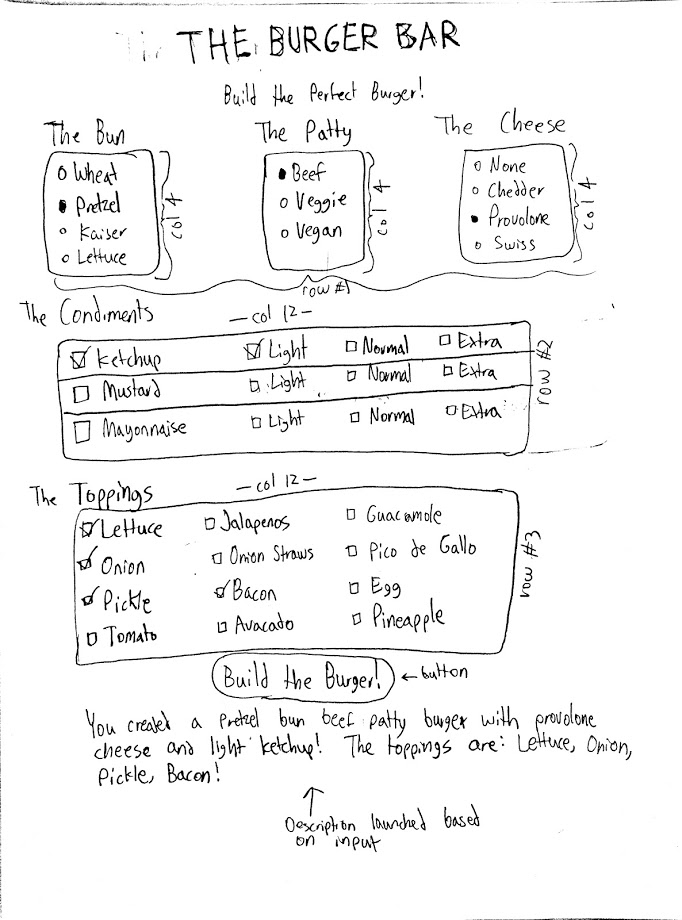 THE BURGER BAR
Build the Perfect Burger!
The Bun
Wheat
Pretzel
Kaiser
Lettuce
col 4
The Patty
Beef
Veggie
Vegan
col 4
The Cheese
None
Chedder
Provolone
Swiss
col 4
row #1
The Condiments
- col 12 -
Ketchup Light Normal Extra
Mustard Light Normal Extra
Mayonnaise Light Normal Extra
row #2
The Toppings
- col 12 -
Lettuce Jalapenos Guacamole
Onion Onion Straws Pico de Gallo
Pickle Bacon Egg
Tomato Avacado Pineapple
row #3
Build the Burger! ← button
You created a pretzel bun beef patty burger with provolone
cheese and light ketchup! The toppings are: Lettuce, Onion,
Pickle, Bacon!
Description launched based
on input